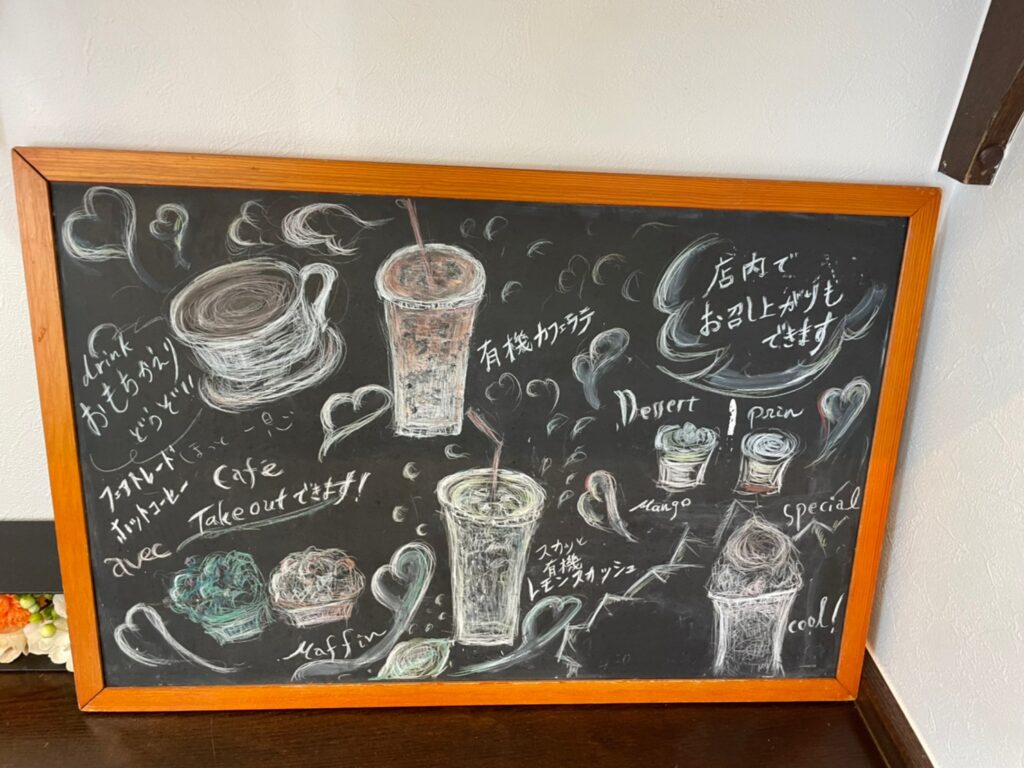 drink
おもちかえり
どうぞ!!
ほっと一息
フェアトレード
ホットコーヒー
Cafe
Takeoutできます!
avec
Maffin
有機カフェラテ
スカッと
有機
レモンスカッシュ
店内で
お召し上がりも
できます
Dessert
prin
Mango
special
cool!